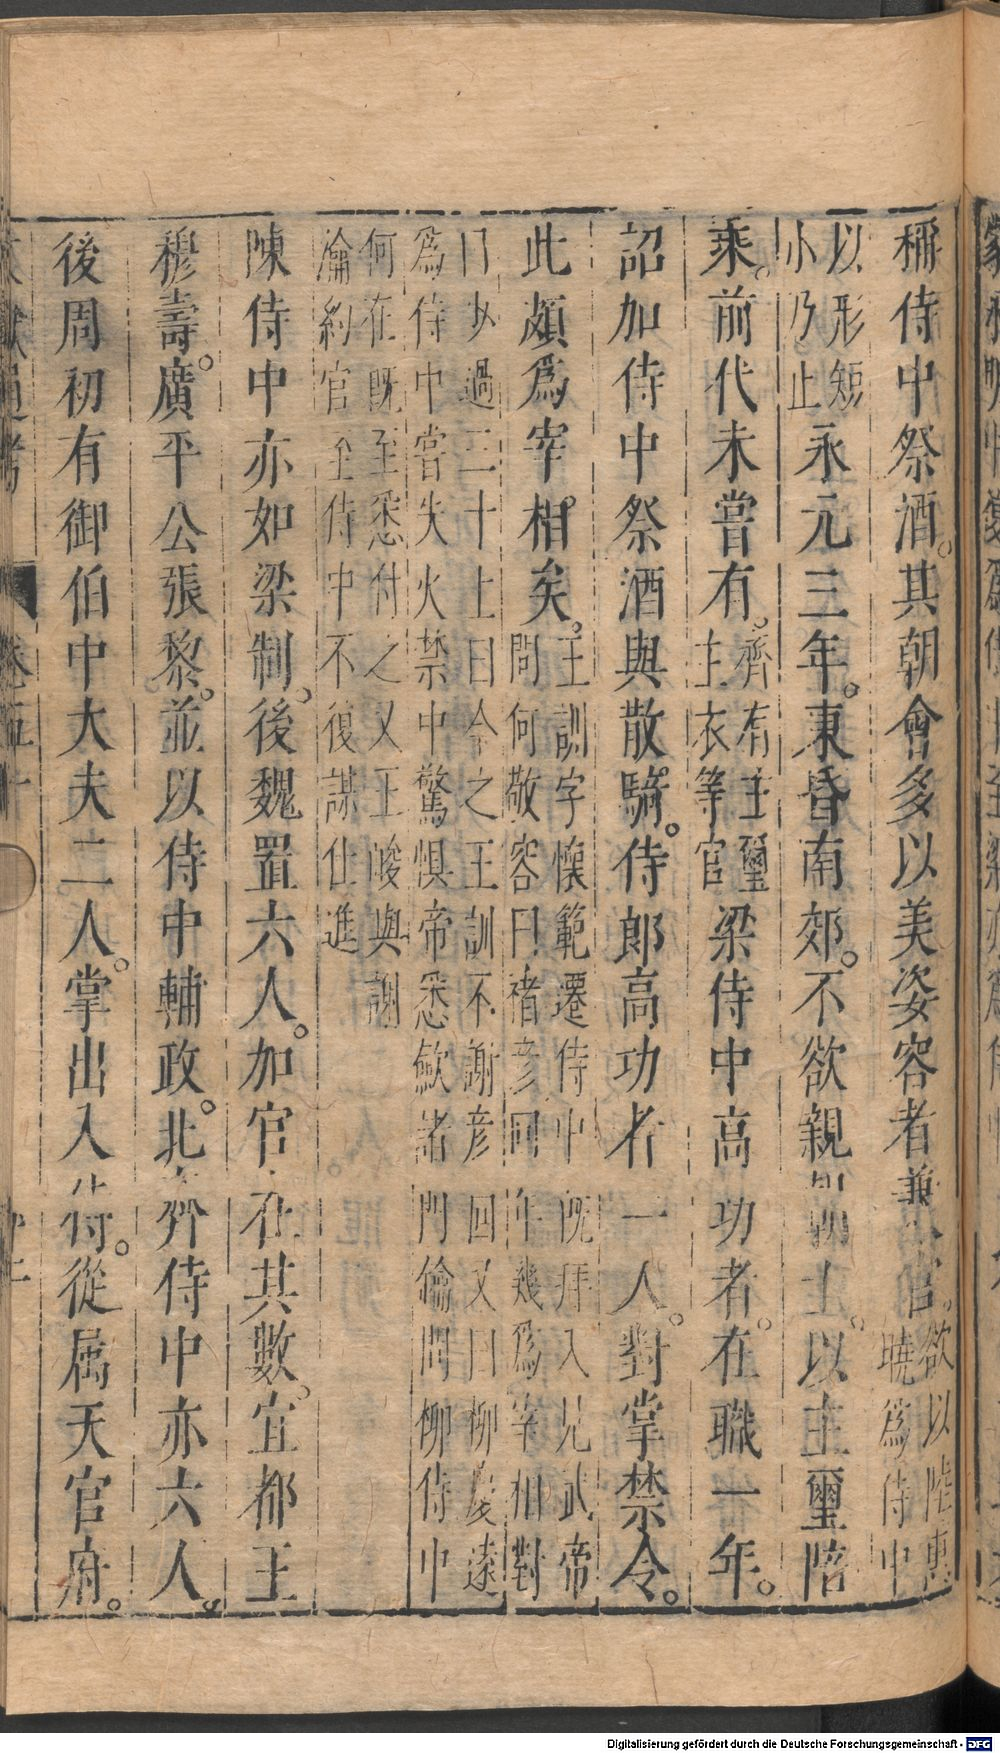 稱侍中祭酒。其朝會多以美姿容者兼官。欲以陸惠
曉爲侍中
以形短
小乃止永元三年。東昏南郊。不欲親朝士。以主璽陪
乘。前代未嘗有。齊有主璽
主衣等官梁侍中高功者。在職一年。
詔加侍中祭酒與散騎。侍郎高功者一人。對掌禁令。
此頗爲宰相矣。王訓字懷範遷侍中既拜入見武帝
問何敬容曰褚彦回年幾爲宰相對
曰少過三十上曰今之王訓不謝彦回又曰柳慶遠
爲侍中嘗失火禁中驚惧帝悉歛諸門鑰問柳侍中
何在既至悉付之又王峻與謝
瀹約官至侍中不復謀仕進
陳侍中亦如梁制。後魏置六人。加官在其數。宜都王
穆壽。廣平公張黎。並以侍中輔政。北齊侍中亦六人。
後周初有御伯中大夫二人。掌出入侍。從属天官府。
卷五十
Digitalisierung gefördert durch die Deutsche Forschungsgemeinschaft - DFG